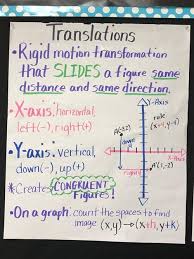 Translations
• Rigid motion transformation
that SLIDES a figure same
distance and same direction.
• X-axis, horizontal,
left(-), right(+)
• Y-axis, vertical,
down(-), up(+)
*Creates CONGRUENT
Figures!
• On a graph, count the spaces to find
image (x,y) → (x+h, y+k)
Y-Axis
rule
(x+4, y-4)
down
X-Axis
right